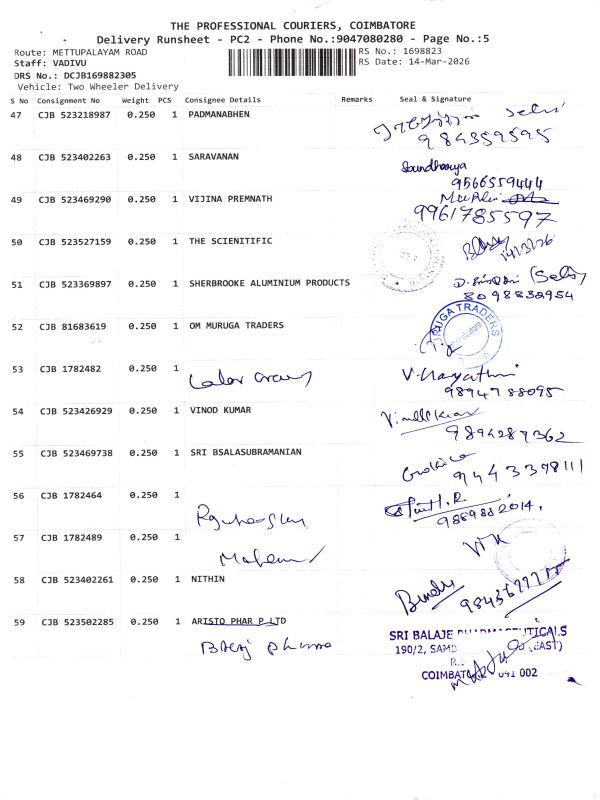 THE PROFESSIONAL COURIERS, COIMBATORE
Delivery Runsheet - PC2 - Phone No.:9047080280 - Page No.:5
Route: METTUPALAYAM ROAD
RS No.: 1698823
Staff: VADIVU
RS Date: 14-Mar-2026
DRS No.: DCJB169882305
Vehicle: Two Wheeler Delivery
S No Consignment No Weight PCS Consignee Details Remarks Seal & Signature
47 CJB 523218987 0.250 1 PADMANABHEN
984359595
48 CJB 523402263 0.250 1 SARAVANAN
Soundhaarya
9566559444
49 CJB 523469290 0.250 1 VIJINA PREMNATH
9961785597
50 CJB 523527159 0.250 1 THE SCIENITIFIC
14/3/26
51 CJB 523369897 0.250 1 SHERBROOKE ALUMINIUM PRODUCTS
8098832954
52 CJB 81683619 0.250 1 OM MURUGA TRADERS
RUGA TRADERS
53 CJB 1782482 0.250 1
9894788095
54 CJB 523426929 0.250 1 VINOD KUMAR
9894287362
55 CJB 523469738 0.250 1 SRI BSALASUBRAMANIAN
9443398111
56 CJB 1782464 0.250 1
9889882014.
57 CJB 1782489 0.250 1
58 CJB 523402261 0.250 1 NITHIN
59 CJB 523502285 0.250 1 ARISTO PHAR P LTD
Balaj pharma
SRI BALAJE PHARMACEUTICALS
190/2, SAMB (EAST)
COIMBATORE 641 002